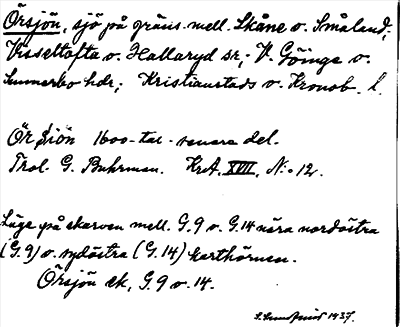 Örsjön, sjö på gräns mell. Skåne o. Småland;
Visseltofta o. Hallaryd sr; V. Göinge o.
Sunnerbo hdr; Kristianstads o. Kronob. l.
Ör Siön 1600-tal - senare del.
Trol. G. Buhrman. KrA. XVII, N:o 12.
Läge på skarven mell. G.9 o. G.14 nära nordöstra
(G.9) o. sydöstra (G.14) karthörnen.
Örsjön ek, G.9 o. 14.
1937.